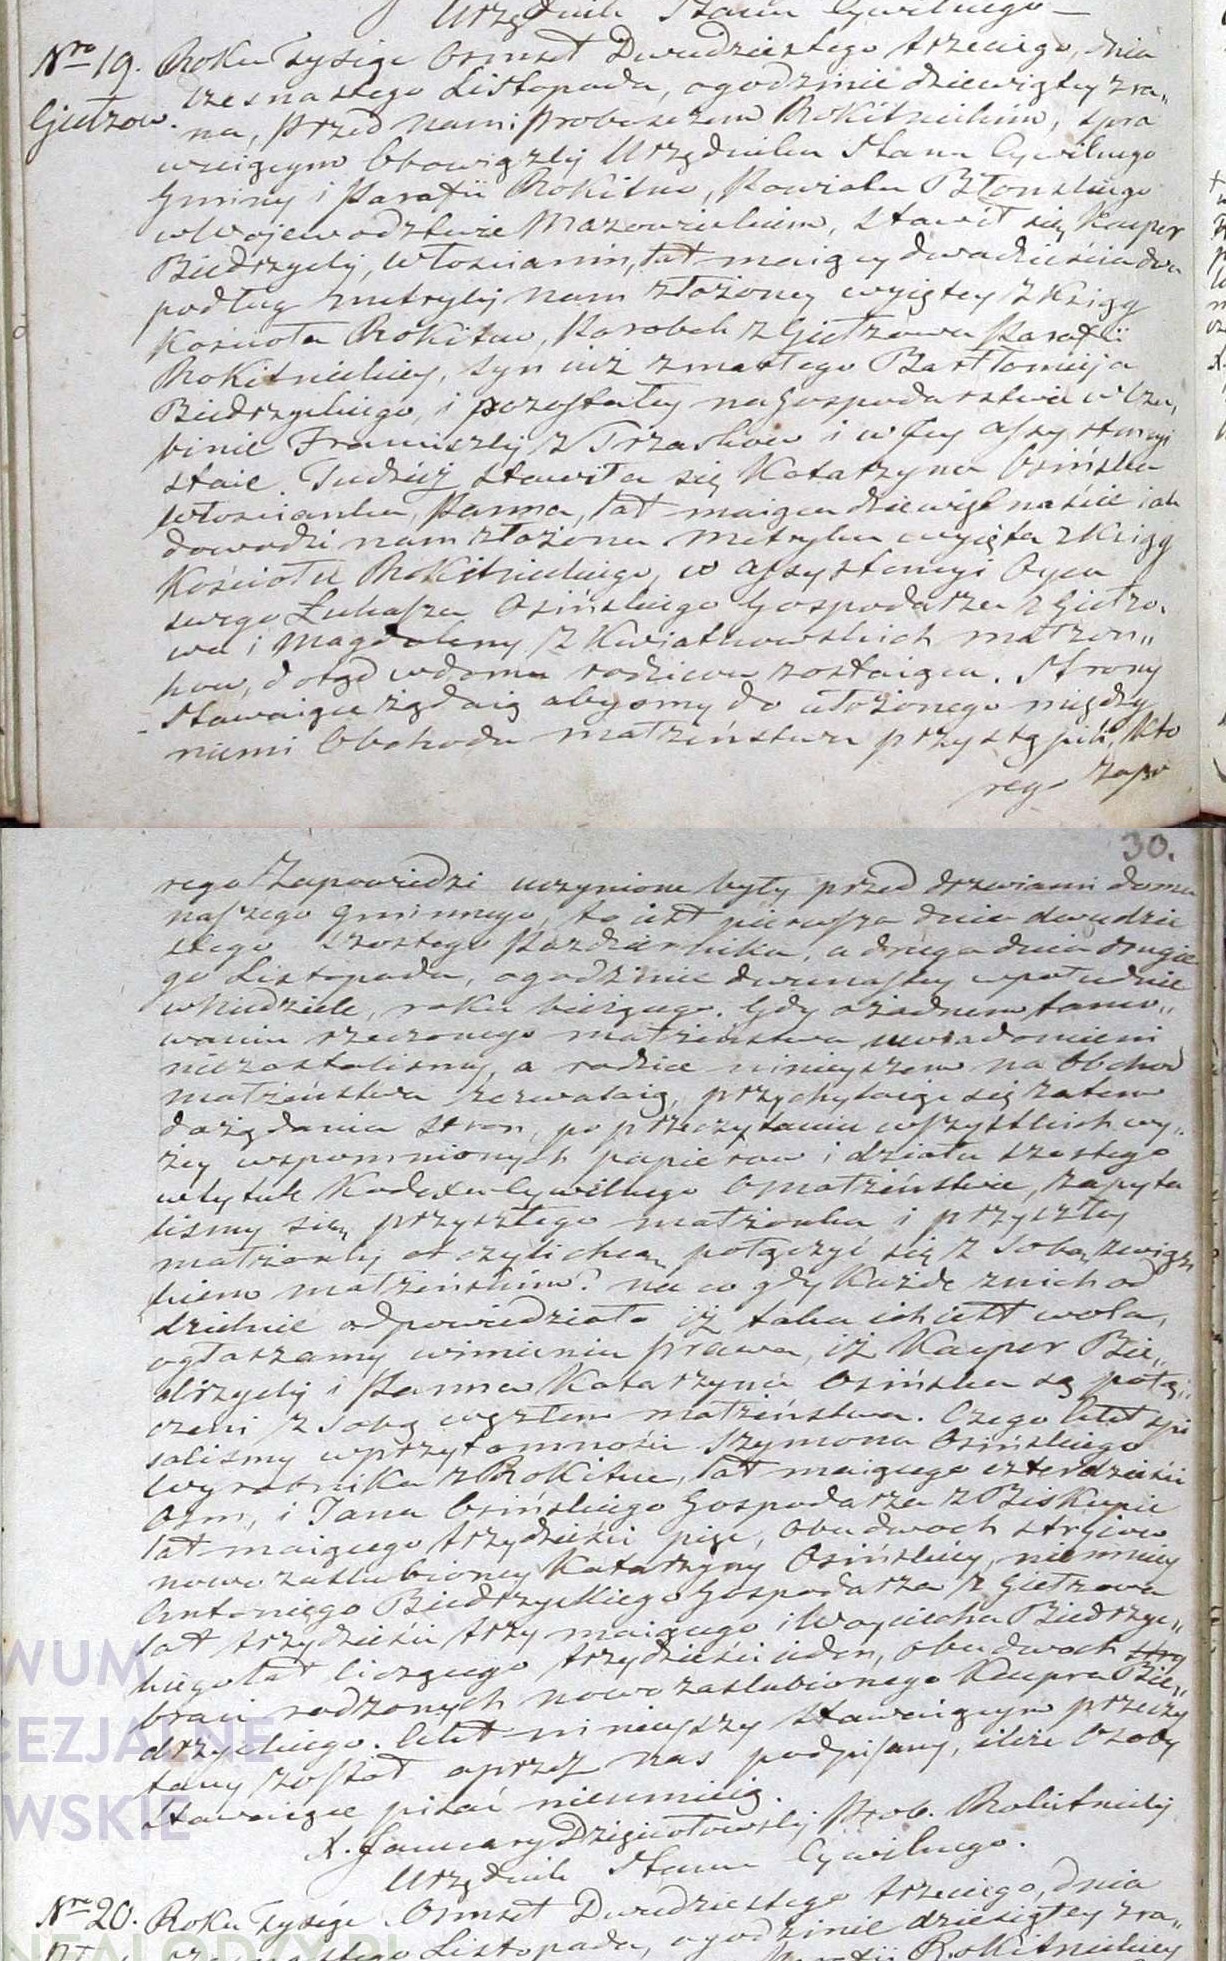 Urzędnik Stanu Cywilnego
Nro 19. Roku Tysiąc Ośmset Dwudziestego trzeciego, dnia
Giełzow. szesnastego Listopada, o godzinie dziewiątey zra„
na, przed nami Proboszczem Rokitnickim, spra
wuiącym Obowiązki Urzędnika Stanu Cywilnego
Gminy i Parafii Rokitno, Powiatu Błonskiego
w Wojewodztwie Mazowieckiem, stawił się Kacper
Biedrzycki, Włoscianin, lat maiący dwadzieścia dwa
podług metryki nam złożoney wyiętey z Ksiąg
Kościoła Rokitno, Parobek z Giełzowa Parafii
Rokitnickiey, syn iuż zmarłego Bartłomieja
Biedrzyckiego, i pozostałey na Gospodarstwie w Czu„
binie Franciszki z Trzasków i w Jey assystencyi
staie. Tudzież stawiła się Katarzyna Osińska
Włoscianka, Panna, lat maiąca dziewiętnaście iak
dowodzi nam złożona Metryka wyięta z Ksiąg
Kościoła Rokitnickiego, w assystencyi Oyca
swego Łukasza Osińskiego Gospodarza z Giełzo„
wa i Magdaleny z Kwiatkowskich małżon„
kow, dotąd w domu rodziców zostaiąca. Strony
stawaiące żądaią abyśmy do ułożonego między
niemi Obchodu małżeństwa przystąpili, Kto
rego Zapo
30.
rego Zapowiedzi uczynione były przed drzwiami domu
naszego gminnego, to iest pierwsza dnia dwudzie
stego szostego Pazdziernika, a druga dnia drugie
go Listopada, o godzinie dwunastey w południe
w Niedziele, roku bieżącego. Gdy o żadnem tamo„
waniu rzeczonego małżeństwa uwiadomieni
niezostalismy, a rodzice ninieyszem na Obchod
małżeństwa zezwalaią, przychylaiąc się zatem
do żądania stron, po przeczytaniu wszystkich wy„
żey wspomnionych papierow i działu szostego
w tytule Kodexu Cywilnego O małżeństwie, zapyta
liśmy się przyszłego małżonka i przyszłey
małżonki czyli chcą połączyć się z sobą związ
kiem małżeńskim? na co gdy każde z nich od
dzielnie odpowiedziało iż taka ich iest wola,
ogłaszamy w imieniu prawa, iż Kacper Bie„
drzycki i Panna Katarzyna Osińska są połą„
czeni z sobą węzłem małżeństwa. Czego Akt spi
saliśmy w przytomności Szymona Osińskiego
Wyrobnika z Rokitna, lat maiącego czterdzieści
Ośm, i Jana Osińskiego Gospodarza z Biskupic
lat maiącego trzydzieści pięć, Obudwoch stryiow
nowo zaslubioney Katarzyny Osińskiey, niemniey
Antoniego Biedrzyckiego Gospodarza z Giełzowa
lat trzydzieści trzy maiącego i Woyciecha Biedrzyc„
kiego lat liczącego trzydzieści ieden, obudwoch stry
braci rodzonych nowo zaslubionego Kacpra Bie„
drzyckiego. Akt ninieyszy stawaiącym przeczy
tany został i przez nas podpisany, ile że Osoby
stawaiące pisać nieumieią.
X. January Dzięciołowski Prob. Rokitnicki
Urzędnik Stanu Cywilnego.
Nro 20. Roku Tysiąc Ośmset Dwudziestego trzeciego, dnia
szesnastego Listopada, o godzinie dziesiątey zra„
Rokitnickiey
WUM
CEZJALNE
WSKIE